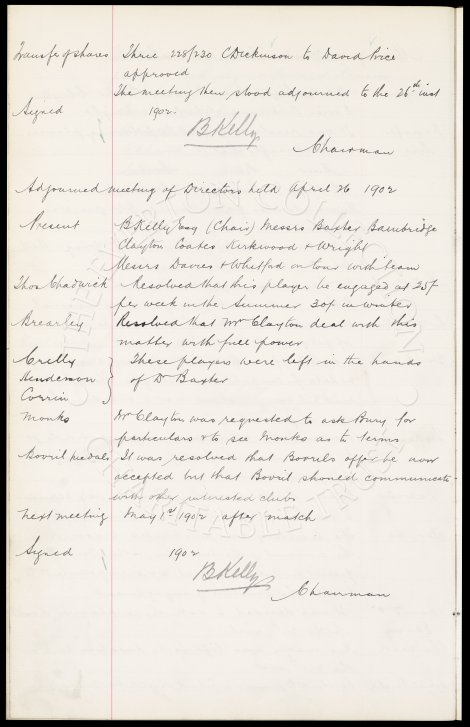 Transfer of shares Three 228/230 C Dickinson to David Price
approved
The meeting then stood adjourned to the 26th inst
Signed 1902.
B Kelly
Chairman
Adjourned meeting of Directors held April 26 1902
Present B Kelly Esq (Chair) Messrs Baxter Bainbridge
Clayton Coates Kirkwood & Wright
Messrs Davies & Whitford on tour with team
Thos Chadwick Resolved that this player be engaged at 25/-
per week in the Summer 30/- in winter
Brearley Resolved that Mr Clayton deal with this
matter with full power
Crelly These players were left in the hands
Henderson of Dr Baxter
Corrin
Monks Mr Clayton was requested to ask Bury for
particulars & to see Monks as to terms
Bovril medals It was resolved that Bovrils offer be now
accepted but that Bovril should communicate
with other interested clubs
Next meeting May 1st 1902 after match
Signed 1902
B Kelly
Chairman